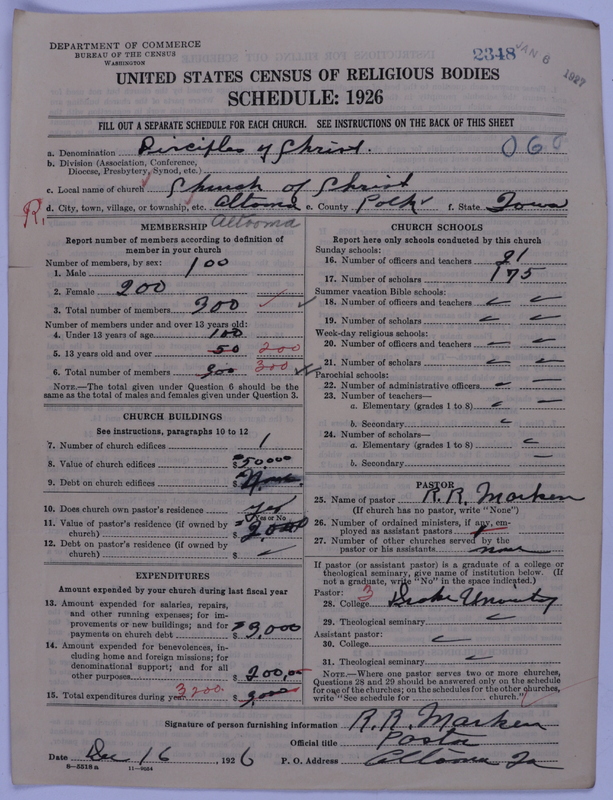 DEPARTMENT OF COMMERCE
BUREAU OF THE CENSUS
WASHINGTON
2348
JAN 6 1927
UNITED STATES CENSUS OF RELIGIOUS BODIES
SCHEDULE: 1926
FILL OUT A SEPARATE SCHEDULE FOR EACH CHURCH. SEE INSTRUCTIONS ON THE BACK OF THIS SHEET
a. Denomination Disciples of Christ.
b. Division (Association, Conference, Diocese, Presbytery, Synod, etc.)
c. Local name of church Church of Christ
R. d. City, town, village, or township, etc. Altoona e. County Polk f. State Iowa
Altoona
MEMBERSHIP
Report number of members according to definition of member in your church
Number of members, by sex:
1. Male 100
2. Female 200
3. Total number of members 300
Number of members under and over 13 years old:
4. Under 13 years of age 100
5. 13 years old and over 50 200
6. Total number of members 300 300
NOTE.—The total given under Question 6 should be the same as the total of males and females given under Question 3.
CHURCH BUILDINGS
See instructions, paragraphs 10 to 12
7. Number of church edifices 1
8. Value of church edifices $50,000
9. Debt on church edifices $ None
10. Does church own pastor's residence yes
Yes or No
11. Value of pastor's residence (if owned by church) $
12. Debt on pastor's residence (if owned by church) $
EXPENDITURES
Amount expended by your church during last fiscal year
13. Amount expended for salaries, repairs, and other running expenses; for improvements or new buildings; and for payments on church debt $3,000
14. Amount expended for benevolences, including home and foreign missions; for denominational support; and for all other purposes $200.00
15. Total expenditures during year 3200. $
CHURCH SCHOOLS
Report here only schools conducted by this church
Sunday schools:
16. Number of officers and teachers 21
17. Number of scholars 175
Summer vacation Bible schools:
18. Number of officers and teachers
19. Number of scholars
Week-day religious schools:
20. Number of officers and teachers
21. Number of scholars
Parochial schools:
22. Number of administrative officers
23. Number of teachers—
a. Elementary (grades 1 to 8)
b. Secondary
24. Number of scholars—
a. Elementary (grades 1 to 8)
b. Secondary
PASTOR
25. Name of pastor R. R. Marken
(If church has no pastor, write "None")
26. Number of ordained ministers, if any, employed as assistant pastors
27. Number of other churches served by the pastor or his assistants none
If pastor (or assistant pastor) is a graduate of a college or theological seminary, give name of institution below. (If not a graduate, write "No" in the space indicated.)
Pastor: 3
28. College Drake University
29. Theological seminary
Assistant pastor:
30. College
31. Theological seminary
NOTE.—Where one pastor serves two or more churches, Questions 28 and 29 should be answered only on the schedule for one of the churches; on the schedules for the other churches, write "See schedule for church."
Signature of person furnishing information R. R. Marken
Official title Pastor
Date Dec 16, 1926 P. O. Address Altoona Ia
8—5518a 11—9024